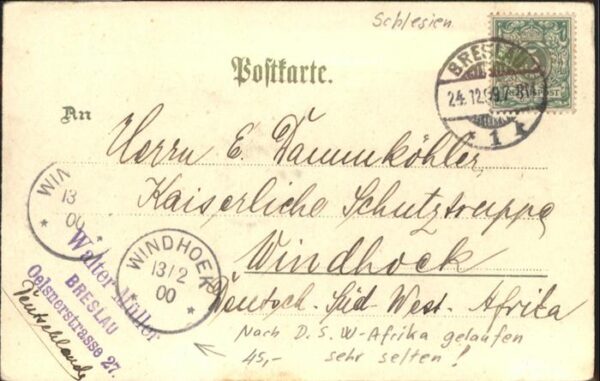 Schlesien
Postkarte.
BRESLAU
24.12.99.7-8N
* 1 k
REICHSPOST
An
Herrn E. Dammköhler,
Kaiserliche Schutztruppe
Windhoek
Deutsch-Süd-West-Afrika
WIN
13
00
*
WINDHOEK
13/2
00
* *
Walter Müller
BRESLAU
Oelsnerstrasse 27.
(Deutschland)
Nach D.S.W-Afrika gelaufen
45,- sehr selten!